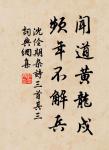 聞道黃龍戍
頻年不解兵
沈佺期杂詩三首其三
詞典網書